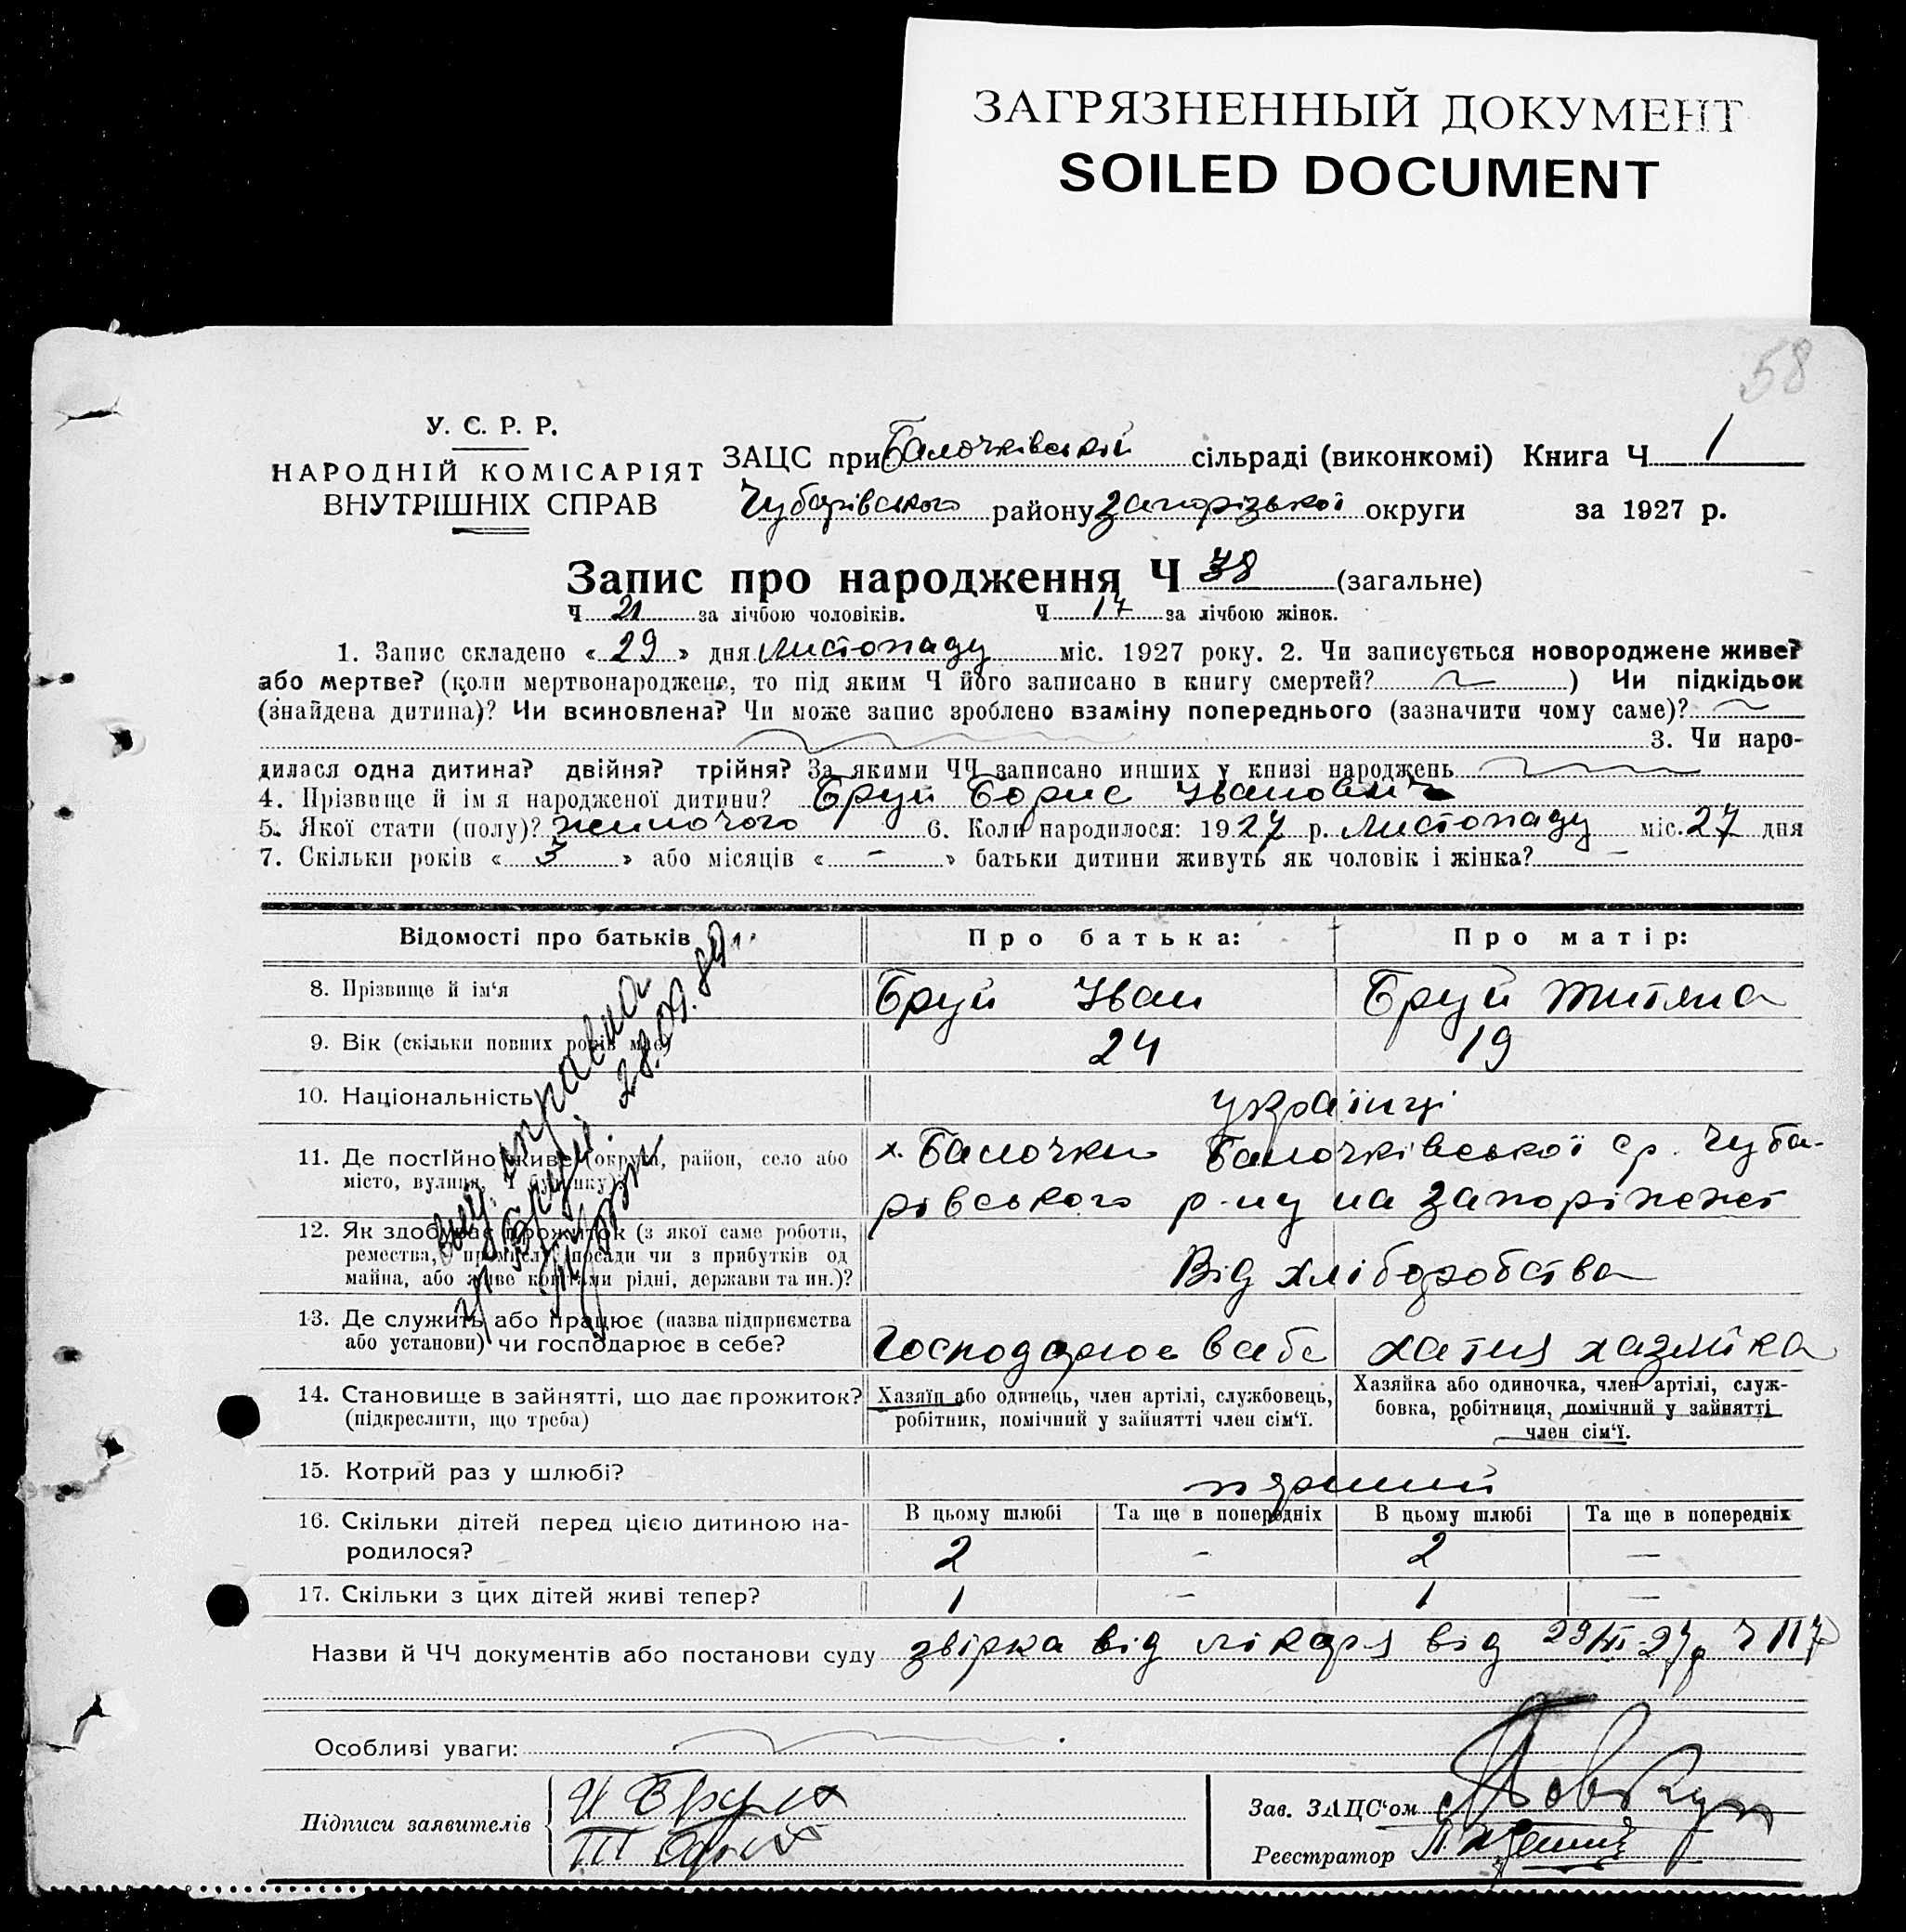 ЗАГРЯЗНЕННЫЙ ДОКУМЕНТ
SOILED DOCUMENT
58
У. С. Р. Р.
НАРОДНІЙ КОМІСАРІЯТ
ВНУТРІШНІХ СПРАВ
ЗАЦС при Балочківській сільраді (виконкомі) Книга Ч 1
Чубарівського району Запорізької округи за 1927 р.
Запис про народження Ч 38 (загальне)
Ч 21 за лічбою чоловіків. Ч 17 за лічбою жінок.
1. Запис складено « 29 » дня Листопаду міс. 1927 року. 2. Чи записується новороджене живе?
або мертве? (коли мертвонароджене, то під яким Ч його записано в книгу смертей? ) Чи підкідьок
(знайдена дитина)? Чи всиновлена? Чи може запис зроблено взаміну попереднього (зазначити чому саме)?
3. Чи наро-
дилася одна дитина? двійня? трійня? За якими ЧЧ записано инших у книзі народжень
4. Прізвище й ім я народженої дитини? Бруй Борис Іванович
5. Якої стати (полу)? 6. Коли народилося: 1927 р. Листопаду міс. 27 дня
7. Скільки років « 3 » або місяців « - » батьки дитини живуть як чоловік і жінка? -
Відомості про батьків Про батька: Про матір:
8. Прізвище й ім‘я Бруй Іван Бруй Титяна
9. Вік (скільки повних років має) 24 19
10. Національність українці
11. Де постІйно живе (округа, район, село або х. Балочки Балочківської ср. Чуба-
місто, вулиця, Ч будинку)? рівського р-ну на Запоріжжі
12. Як здобуває прожиток (з якої саме роботи,
ремества, промислу, посади чи з прибутків од
майна, або живе коштами рідні, держави та ин.)? Від хліборобства
13. Де служить або працює (назва підприємства
або установи) чи господарює в себе? Господарює в себе хатня хазяйка
14. Становище в зайнятті, що дає прожиток? Хазяїн або одинець, член артілі, службовець, Хазяйка або одиночка, член артілі, служ-
(підкреслити, що треба) робітник, помічний у зайнятті член сім‘ї. бовка, робітниця, помічний у зайнятті
член сім‘ї.
28.09.89 г.
15. Котрий раз у шлюбі? перший
В цьому шлюбі Та ще в попередніх В цьому шлюбі Та ще в попередніх
16. Скільки дітей перед цією дитиною на-
родилося? 2 - 2 —
17. Скільки з цих дітей живі тепер? 1 - 1 —
Назви й ЧЧ документів або постанови суду звірка від лікаря від 29/XI-27р Ч 117
Особливі уваги:
Підписи заявителів
Зав. ЗАЦС‘ом
Реєстратор